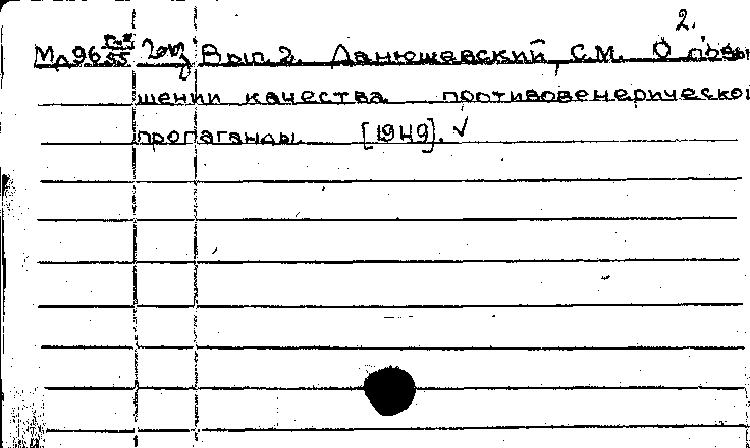 2.
Мд96 55 2оп Вып. 2. Данюшевский, С.М. О повы
шении качества противовенерической
пропаганды. [1949]. √